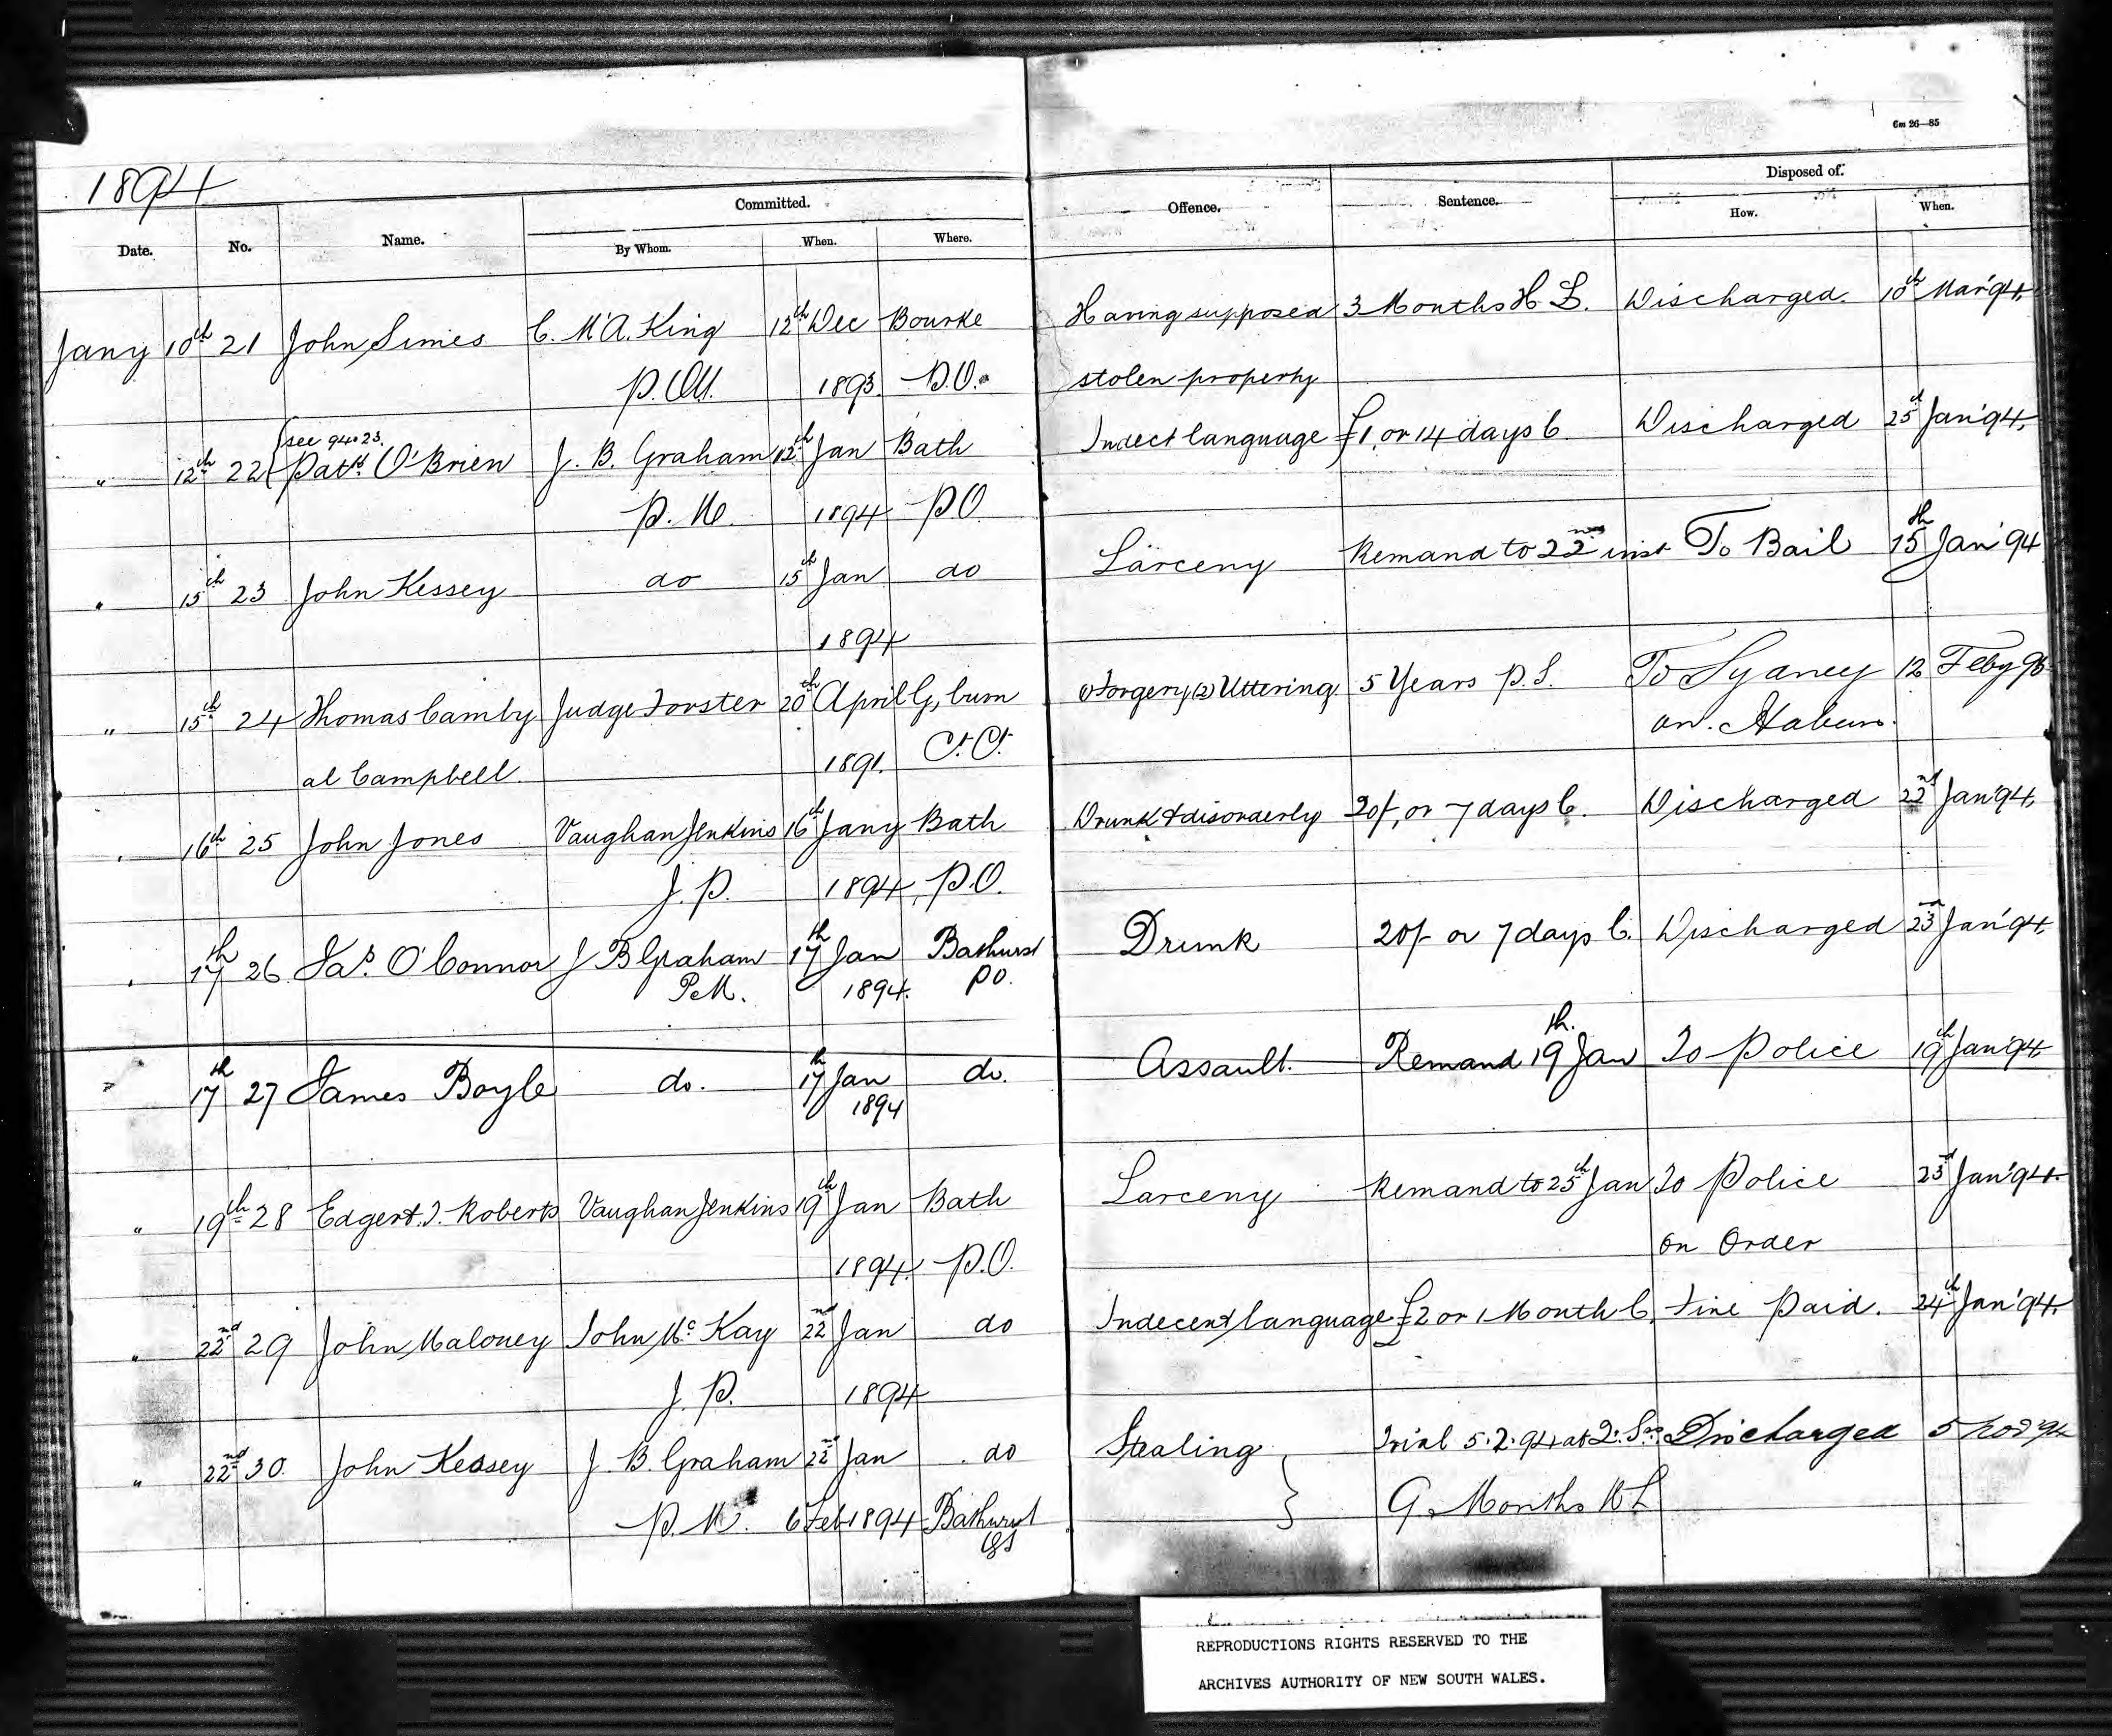 6m 26—85
1894
Date. No. Name. Committed. Offence. Sentence. Disposed of.
By Whom. When. Where. How. When.
Jany 10th 21 John Simes C. McA. King 12th Dec Bourke Having supposed 3 Months H L. Discharged. 10th Mar'94.
P.M. 1893. P.O. stolen property
see 94.23.
" 12th 22 Patk O'Brien J. B. Graham 12th Jan Bath Indect language £1, or 14 days C. Discharged 25th Jan'94.
P.M. 1894 PO
" 15th 23 John Kessey do 15th Jan do Larceny Remand to 22nd inst To Bail 15th Jan'94
1894
" 15th 24 Thomas Camby Judge Forster 20th April G,burn (1) Forgery (2) Uttering 5 Years P.S. To Sydney 12 Feby 95
al Campbell 1891. Ct. Ct. on. Habeus.
" 16th 25 John Jones Vaughan Jenkins 16th Jany Bath Drunk & disorderly 20/, or 7 days C. Discharged 22nd Jan'94.
J. P. 1894 P.O.
" 17th 26 Jas. O'Connor J B Graham 17th Jan Bathurst Drunk 20/- or 7 days C. Discharged 23rd Jan'94.
P.M. 1894. PO.
" 17th 27 James Boyle do. 17th Jan do. Assault. Remand 19th Jan To Police 19th Jan'94
1894
" 19th 28 Edgert. J. Roberts Vaughan Jenkins 19th Jan Bath Larceny Remand to 25th Jan To Police 23rd Jan'94.
1894. P.O. on Order
" 22nd 29 John Maloney John Mc Kay 22nd Jan do Indecent language £2 or 1 Month C. Fine Paid. 24th Jan'94.
J. P. 1894
" 22nd 30. John Kessey J. B. Graham 22nd Jan do Stealing Trial 5.2.94 at Q. Sns. Discharged 5 Nov 94
P.M. 6 Feb 1894 Bathurst QS 9 Months H L
REPRODUCTIONS RIGHTS RESERVED TO THE
ARCHIVES AUTHORITY OF NEW SOUTH WALES.